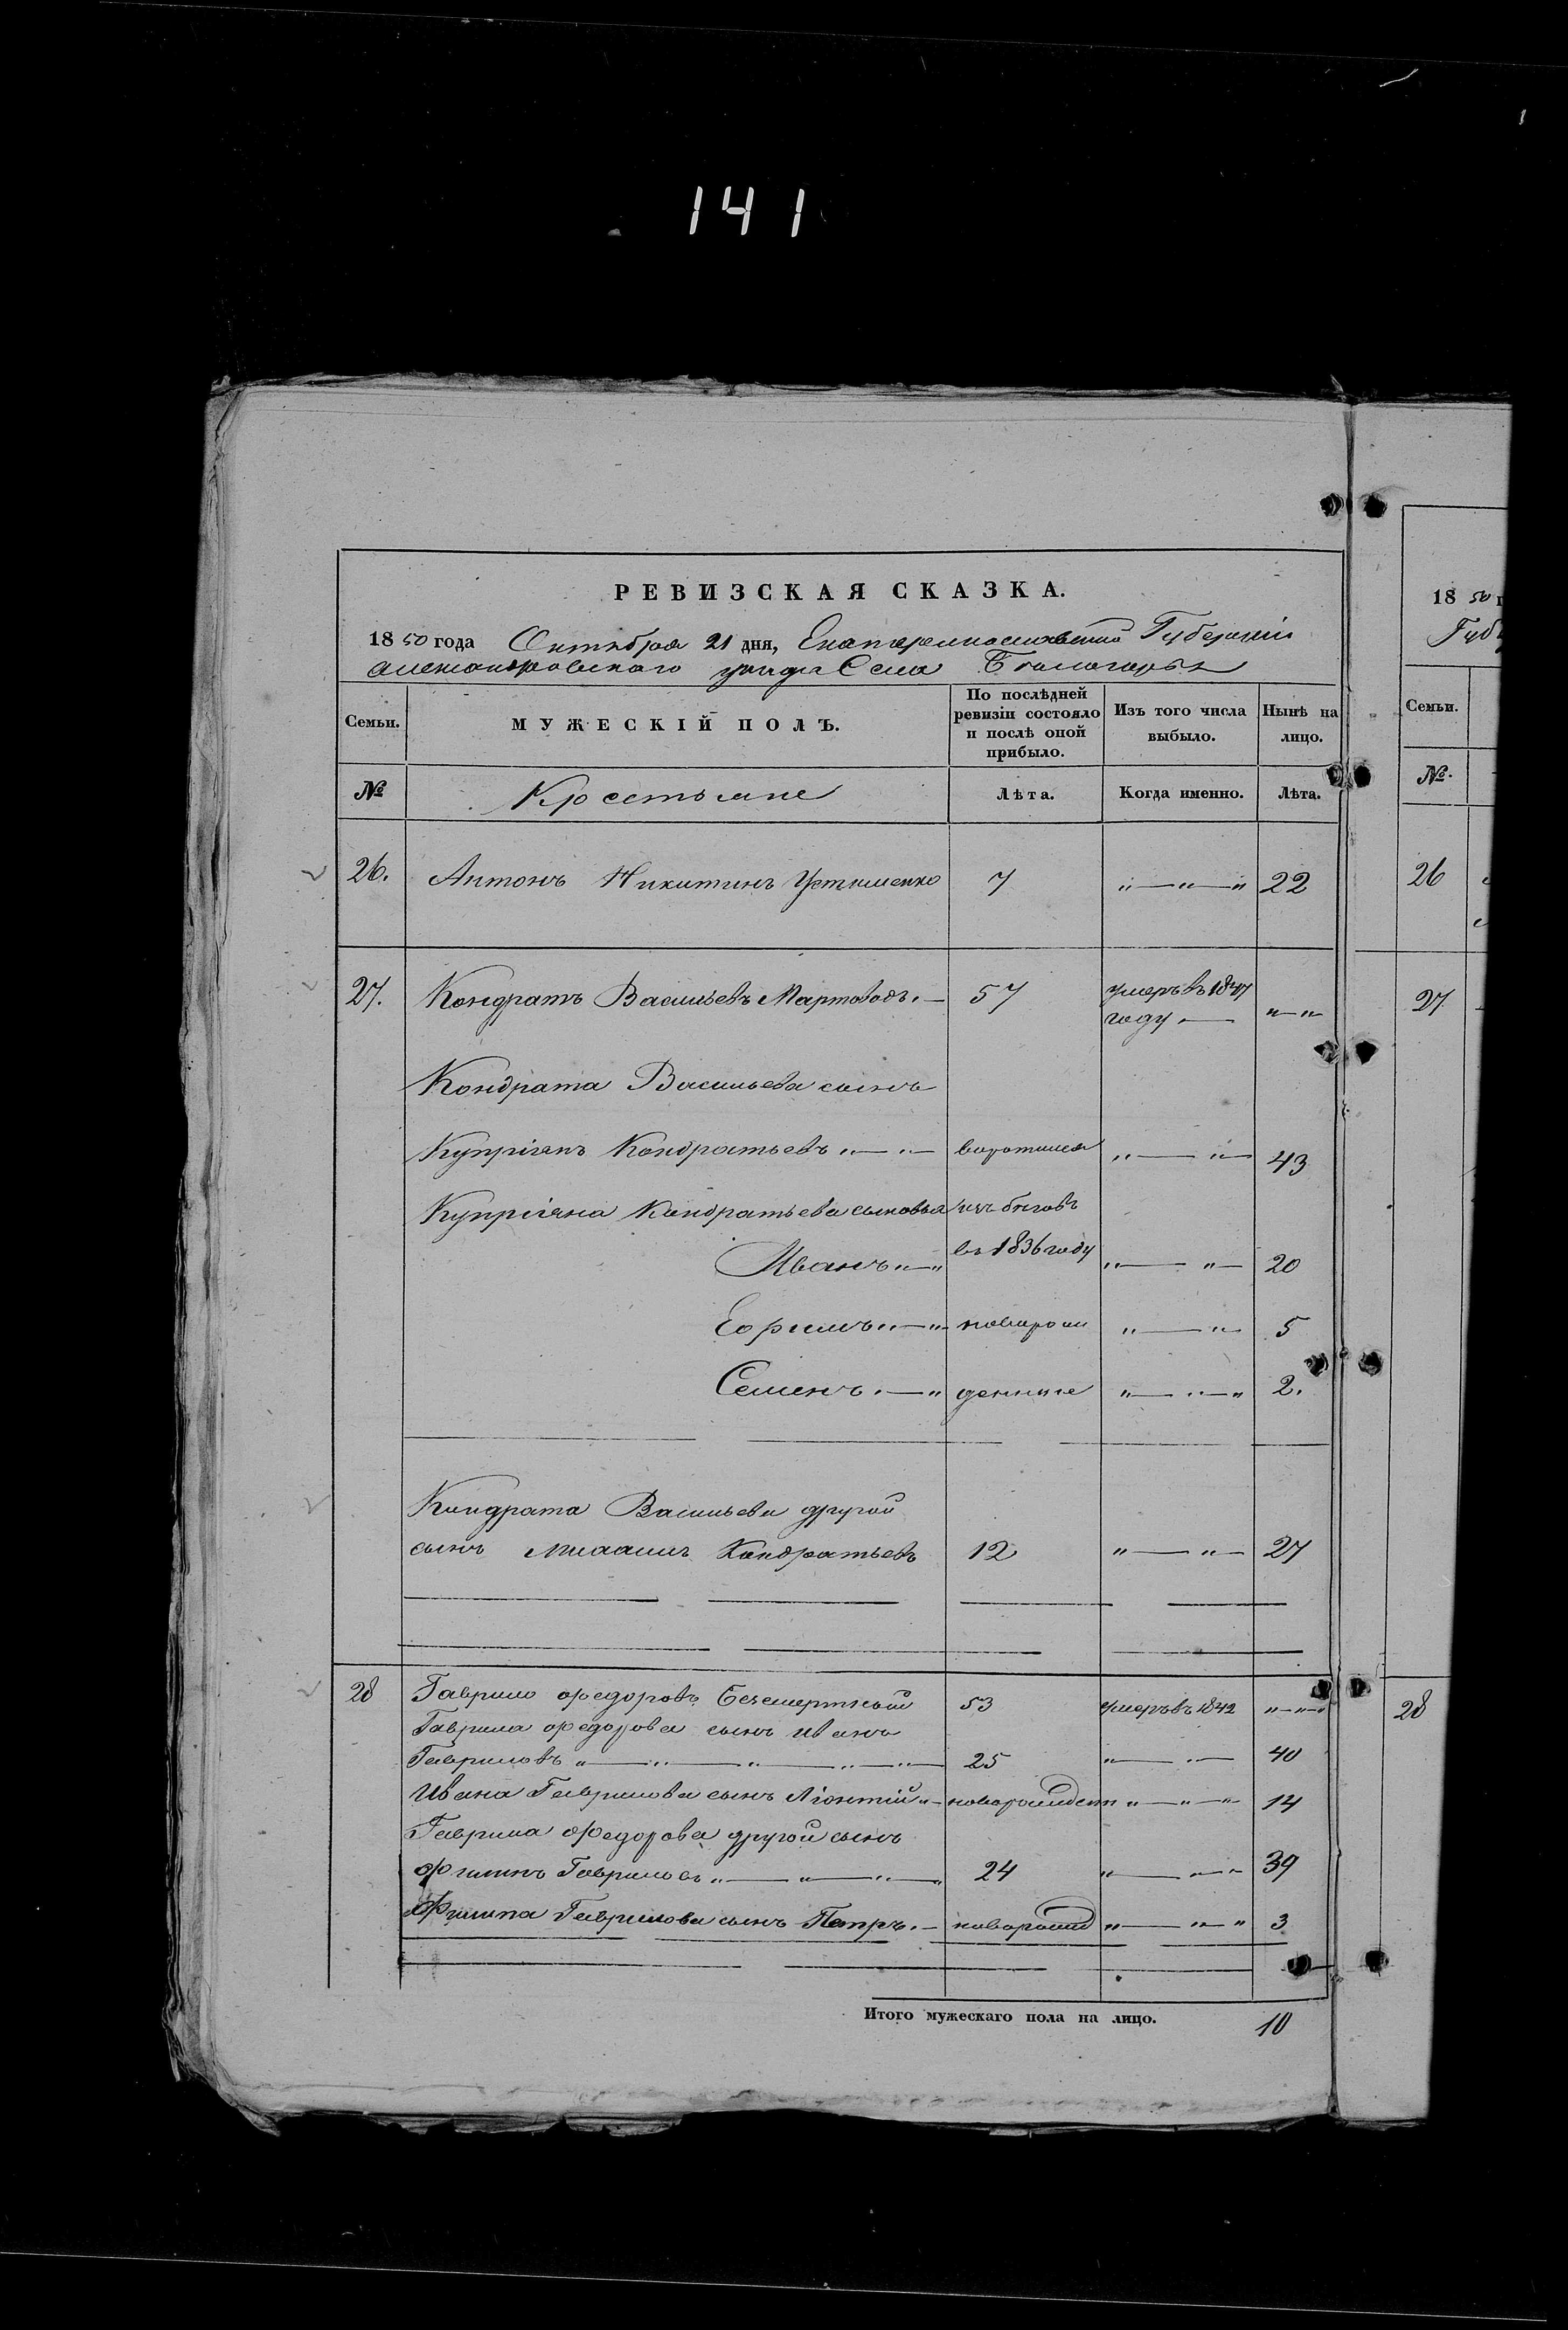 141
РЕВИЗСКАЯ СКАЗКА.
1850 года Октября 21 дня, Екатеринославской Губерніи
Александровскаго уезда Села Белогорья
Семьи. МУЖЕСКІЙ ПОЛЪ. По послѣдней ревизіи состояло и послѣ оной прибыло. Изъ того числа выбыло. Нынѣ на лицо.
№ Крестьяне Лѣта. Когда именно. Лѣта.
26. Антонъ Никитинъ 7 "—"—" 22
27. Кондратъ Васильевъ Мартоводъ.— 57 умеръ въ 1847 году.— "—"
Кондрата Васильева сынъ
Купріянъ Кондратьевъ "— "— воротился "— "— 43
Купріяна Кондратьева сыновья изъ бѣговъ
Иванъ "—" въ 1836 году "— "— 20
Ефримъ "—"— новорож "— "— 5
Семенъ .—" денные "— "—" 2.
Кондрата Васильева другой
сынъ Кондратьевъ 12 "— "— 27
28 Гаврило Федоровъ Безсмертный 53 умеръ въ 1842 "—"—"
Гаврила Федорова сынъ Иванъ
Гавриловъ "— "— "— "— "— 25 "— "— 40
Ивана Гаврилова сынъ Ліонтій "— новорожден "— "— "— 14
Гаврила Федорова другой сынъ
Филипъ Гавриловъ "— "— "— " 24 "— "— 39
Филипа Гаврилова сынъ Петръ .— новорожд "— "— " 3
Итого мужескаго пола на лицо. 10
1850 г
Губ
Семьи.
№.
26
27
28